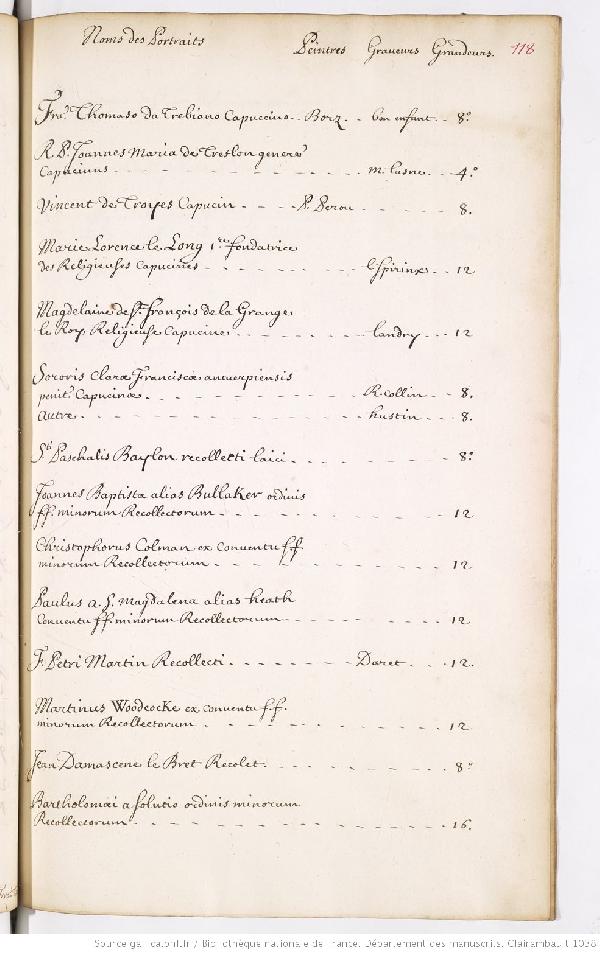 Noms des Portraits Peintres Graveurs Grandeurs. 118
Fra. Thomaso da Trebiano Capuccino. Borz. bon enfant 8°
R. P. Joannes Maria de Treslon gener.
Capucinus m. lasne 4°
Vincent de Troyes Capucin P. Perou 8.
Marie Lorence le Long 1re fondatrice
des Religieuses Capucines lespirinx 12
Magdelaine de St. françois de la Grange
le Roy Religieuse Capucine landry 12
Sororis Clara Francisca antuerpiensis
penit. Capucina R. collin 8.
autre hustin 8.
Sti Paschalis Baylon recollecti laici 8°
Joannes Baptista alias Bullaker ordinis
ff. minorum Recollectorum 12
Christophorus Colman ex conventu ff.
minorum Recollectorum 12
Paulus a S. Magdalena alias heath
Conventu ff. minorum Recollectorum 12
F. Petri Martin Recollecti Daret 12.
Martinus Woodcocke ex conventu f.f.
minorum Recollectorum 12
Jean Damascene le Bret Recolet. 8°
Bartholomæi a solutio ordinis minorum
Recollectorum 16.
Source gallica.bnf.fr / Bibliothèque nationale de France. Département des manuscrits. Clairambault 1038